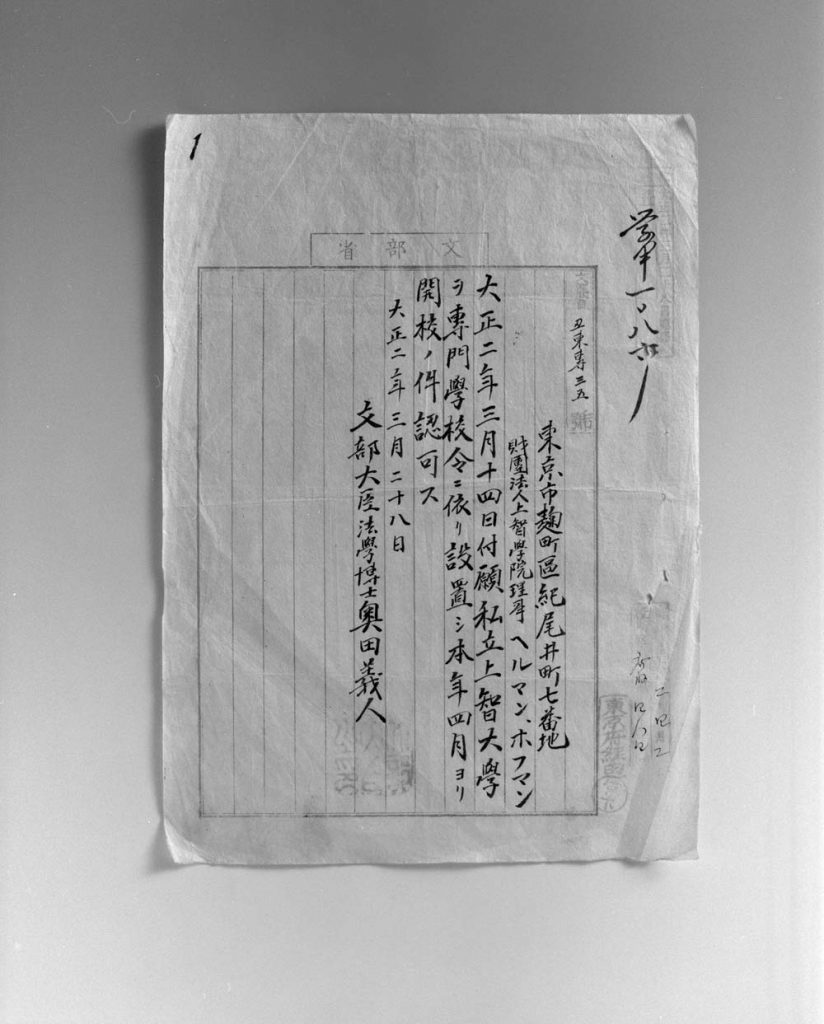 1
文部省
丑東專三五號
東京市麹町區紀尾井町七番地
財團法人上智學院理事 ヘルマン、ホフマン
大正二年三月十四日付願私立上智大學
ヲ專門學校令ニ依リ設置シ本年四月ヨリ
開校ノ件認可ス
大正二年三月二十八日
文部大臣法學博士奥田義人